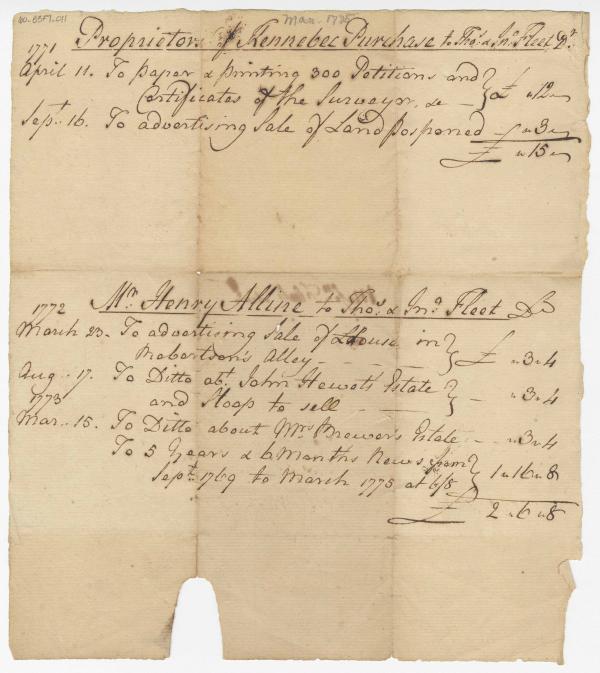 Mar. 1775
1771 Proprietors of Kennebec Purchase to Thos. & Jno. Fleet Dr.
April 11. To paper & printing 300 Petitions and
Certificates of the Surveyor, &c — } £ „ 12 „
Sept. 16. To advertising Sale of Land postponed — „ 3 „
£ „ 15 „
1772 Mr. Henry Alline to Thos. & Jno. Fleet Dr
March 23. To advertising Sale of House in
Robertson's Alley — } £ „ 3 „ 4
Aug. 17. To Ditto abt. John Hewet's Estate
1773 and Sloop to sell — } — „ 3 „ 4
Mar. 15. To Ditto about Mrs. Brewer's Estate — „ 3 „ 4
To 5 Years & 6 Months News from
Sept. 1769 to March 1775 at 6/8 } 1 „ 16 „ 8
£ 2 „ 6 „ 8